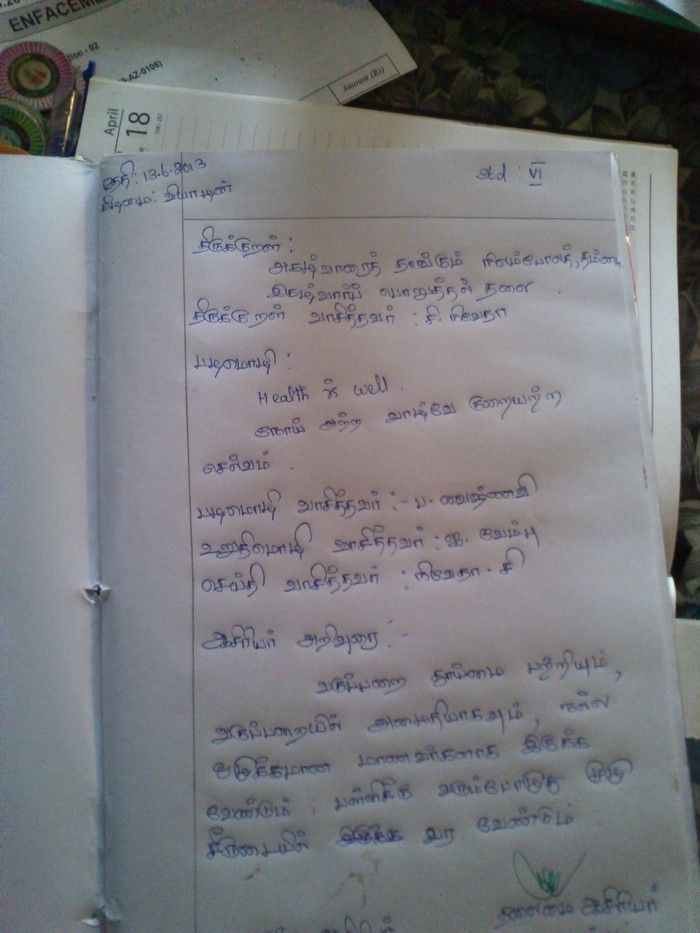 ENFACEME
Amount (Rs)
April
18
தேதி : 13.6.2013
கிழமை : வியாழன்
std : VI
திருக்குறள் :
அகழ்வாரைத் தாங்கும் நிலம்போலத், தம்மை
இகழ்வார்ப் பொறுத்தல் தலை .
திருக்குறள் வாசித்தவர் : சி. நிவேதா
பழமொழி :
Health is well .
நோய் அற்ற வாழ்வே குறையற்ற
செல்வம் .
பழமொழி வாசித்தவர் :- ப. வைஷ்ணவி
உறுதிமொழி வாசித்தவர் : ஐ. வேம்பு
செய்தி வாசித்தவர் : நிவேதா . சி
ஆசிரியர் அறிவுரை :-
வகுப்பறை தூய்மை பற்றியும் ,
வகுப்பறையில் அமைதியாகவும் , நல்ல
ஒழுக்கமான மாணவர்களாக இருக்க
வேண்டும் . பள்ளிக்கு வரும்போழுது முழு
சீருடையில் வர வேண்டும்
தலைமை ஆசிரியர்